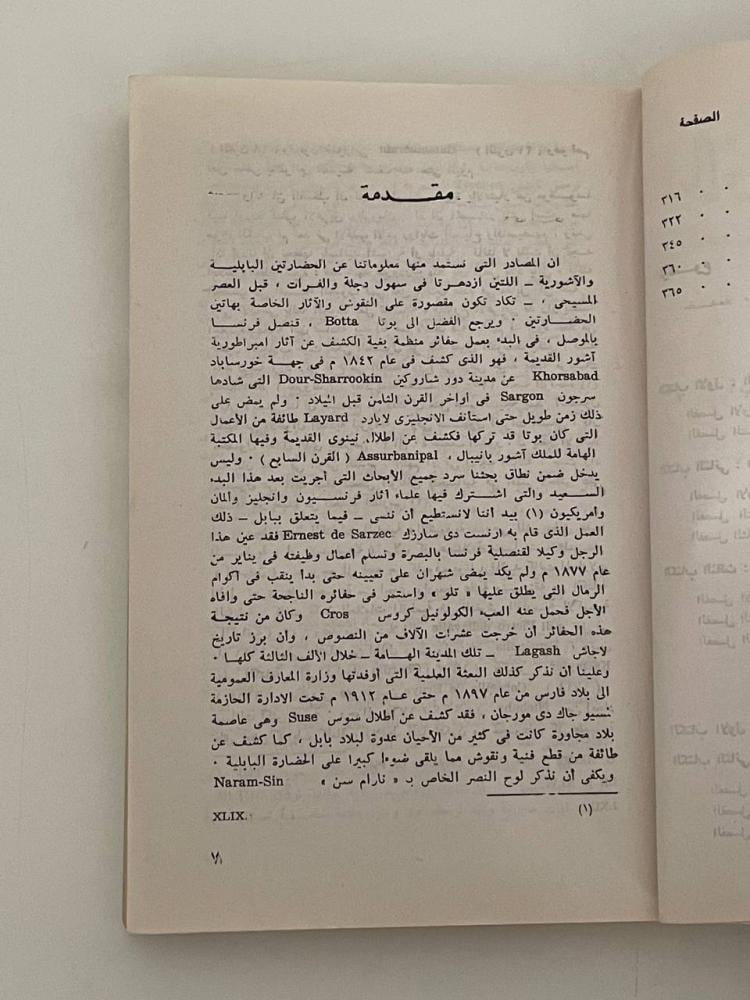 الصفحة
٣١٦
٣٢٢
٣٤٥
٣٦٠
٣٦٥
مقدمة
ان المصادر التى نستمد منها معلوماتنا عن الحضارتين البابلية
والآشورية ــ اللتين ازدهرتا فى سهول دجلة والفرات ، قبل العصر
المسيحى ، ــ تكاد تكون مقصورة على النقوش والآثار الخاصة بهاتين
الحضارتين · ويرجع الفضل الى بوتا Botta ، قنصل فرنسا
بالموصل ، فى البدء بعمل حفائر منظمة بغية الكشف عن آثار امبراطورية
آشور القديمة ، فهو الذى كشف فى عام ١٨٤٢ م فى جهة خورساباد
Khorsabad عن مدينة دور شاروكين Dour-Sharrookin التى شادها
سرجون Sargon فى أواخر القرن الثامن قبل الميلاد · ولم يمض على
ذلك زمن طويل حتى استأنف الانجليزى لايارد Layard طائفة من الأعمال
التى كان بوتا قد تركها فكشف عن اطلال نينوى القديمة وفيها المكتبة
الهامة للملك آشور بانيبال، Assurbanipal ( القرن السابع ) · وليس
يدخل ضمن نطاق بحثنا سرد جميع الأبحاث التى أجريت بعد هذا البدء
السعيد والتى اشترك فيها علماء آثار فرنسيون وانجليز والمان
وأمريكيون (١) بيد أننا لانستطيع أن ننسى ــ فيما يتعلق ببابل ــ ذلك
العمل الذى قام به ارنست دى سارزك Ernest de Sarzec فقد عين هذا
الرجل وكيلا لقنصلية فرنسا بالبصرة وتسلم أعمال وظيفته فى يناير من
عام ١٨٧٧ م ولم يكد يمضى شهران على تعيينه حتى بدأ ينقب فى أكوام
الرمال التى يطلق عليها « تلو » واستمر فى حفائره الناجحة حتى وافاه
الأجل فحمل عنه العبء الكولونيل كروس Cros وكان من نتيجة
هذه الحفائر أن خرجت عشرات الآلاف من النصوص ، وأن برز تاريخ
لاجاش Lagash ــ تلك المدينة الهامة ــ خلال الألف الثالثة كلها ·
وعلينا أن نذكر كذلك البعثة العلمية التى أوفدتها وزارة المعارف العمومية
الى بلاد فارس من عام ١٨٩٧ م حتى عام ١٩١٢ م تحت الادارة الحازمة
لمسيو جاك دى مورجان ، فقد كشف عن أطلال سوس Suse وهى عاصمة
بلاد مجاورة كانت فى كثير من الأحيان عدوة لبلاد بابل ، كما كشف عن
طائفة من قطع فنية ونقوش مما يلقى ضوءا كبيرا على الحضارة البابلية ·
ويكفى أن نذكر لوح النصر الخاص بـ « نارام سن » Naram-Sin
(١) XLIX.
٧